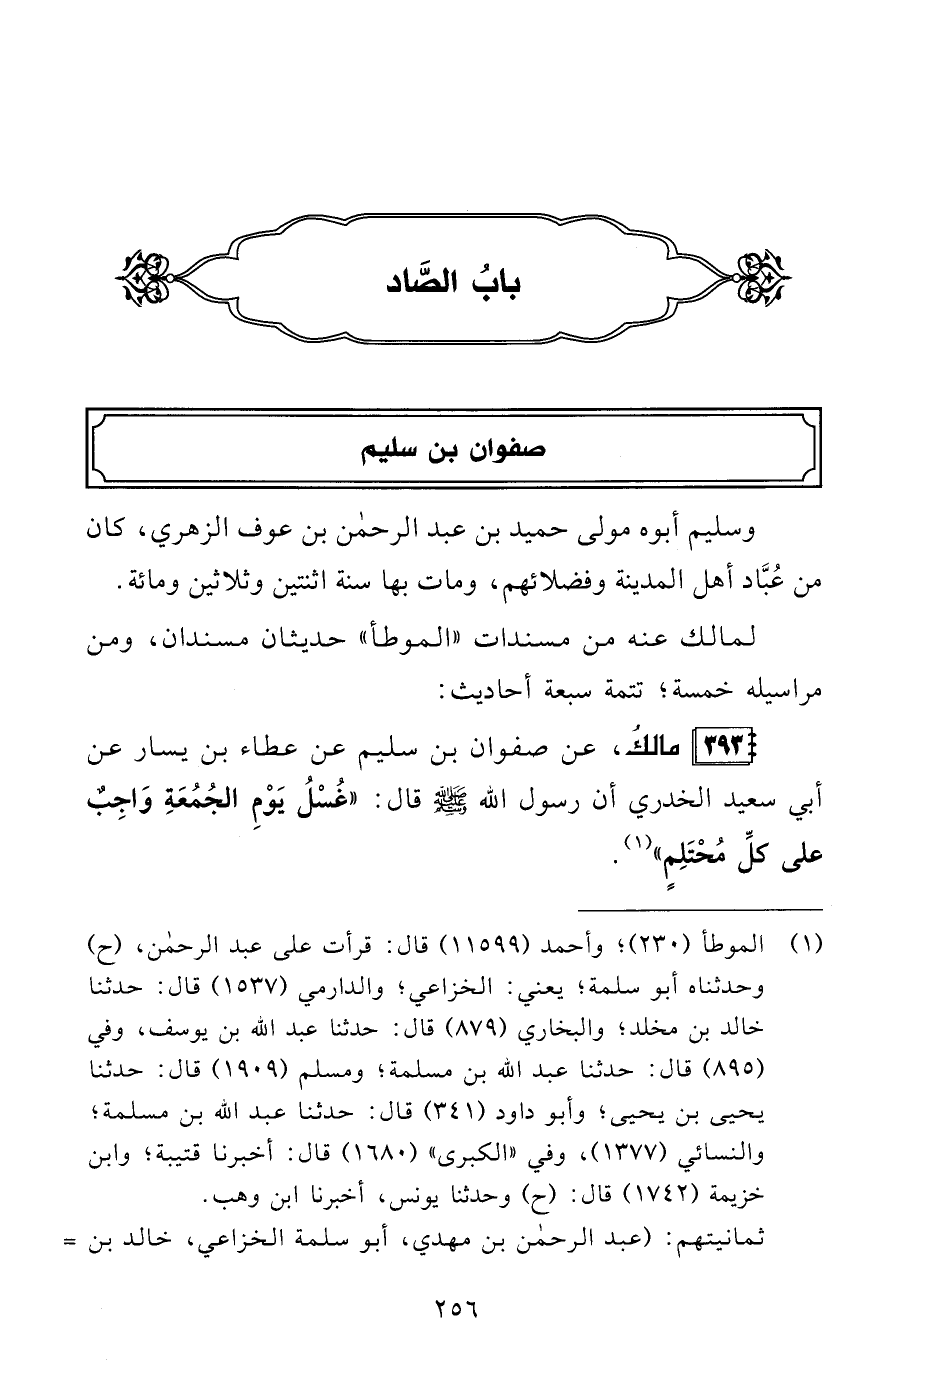 بابُ الصَّاد
صفوان بن سليم
وسليم أبوه مولى حميد بن عبد الرحمٰن بن عوف الزهري، كان
من عُبَّاد أهل المدينة وفضلائهم، ومات بها سنة اثنتين وثلاثين ومائة.
لمالك عنه من مسندات «الموطأ» حديثان مسندان، ومن
مراسيله خمسة؛ تتمة سبعة أحاديث:
٣٩٣ مالكُ، عن صفوان بن سليم عن عطاء بن يسار عن
أبي سعيد الخدري أن رسول الله ﷺ قال: «غُسْلُ يَوْمِ الجُمُعَةِ وَاجِبٌ
على كلِّ مُحْتَلِمٍ»(١).
(١) الموطأ (٢٣٠)؛ وأحمد (١١٥٩٩) قال: قرأت على عبد الرحمٰن، (ح)
وحدثناه أبو سلمة؛ يعني: الخزاعي؛ والدارمي (١٥٣٧) قال: حدثنا
خالد بن مخلد؛ والبخاري (٨٧٩) قال: حدثنا عبد الله بن يوسف، وفي
(٨٩٥) قال: حدثنا عبد الله بن مسلمة؛ ومسلم (١٩٠٩) قال: حدثنا
يحيى بن يحيى؛ وأبو داود (٣٤١) قال: حدثنا عبد الله بن مسلمة؛
والنسائي (١٣٧٧)، وفي «الكبرى» (١٦٨٠) قال: أخبرنا قتيبة؛ وابن
خزيمة (١٧٤٢) قال: (ح) وحدثنا يونس، أخبرنا ابن وهب.
ثمانيتهم: (عبد الرحمٰن بن مهدي، أبو سلمة الخزاعي، خالد بن =
٢٥٦